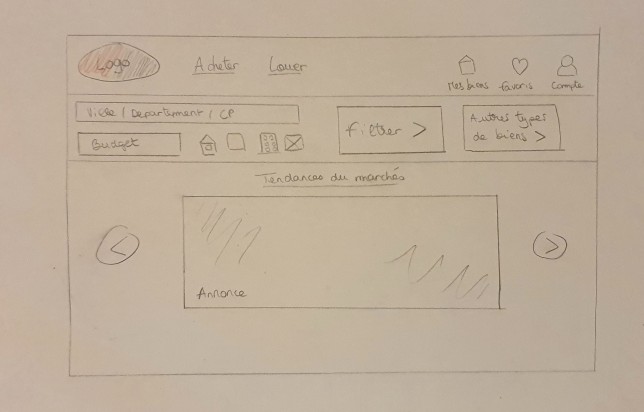 Logo
Acheter
Louer
Mes biens
favoris
Compte
Ville / Departement / CP
Budget
filtrer >
Autres types
de biens >
Tendances du marchés
<
>
Annonce